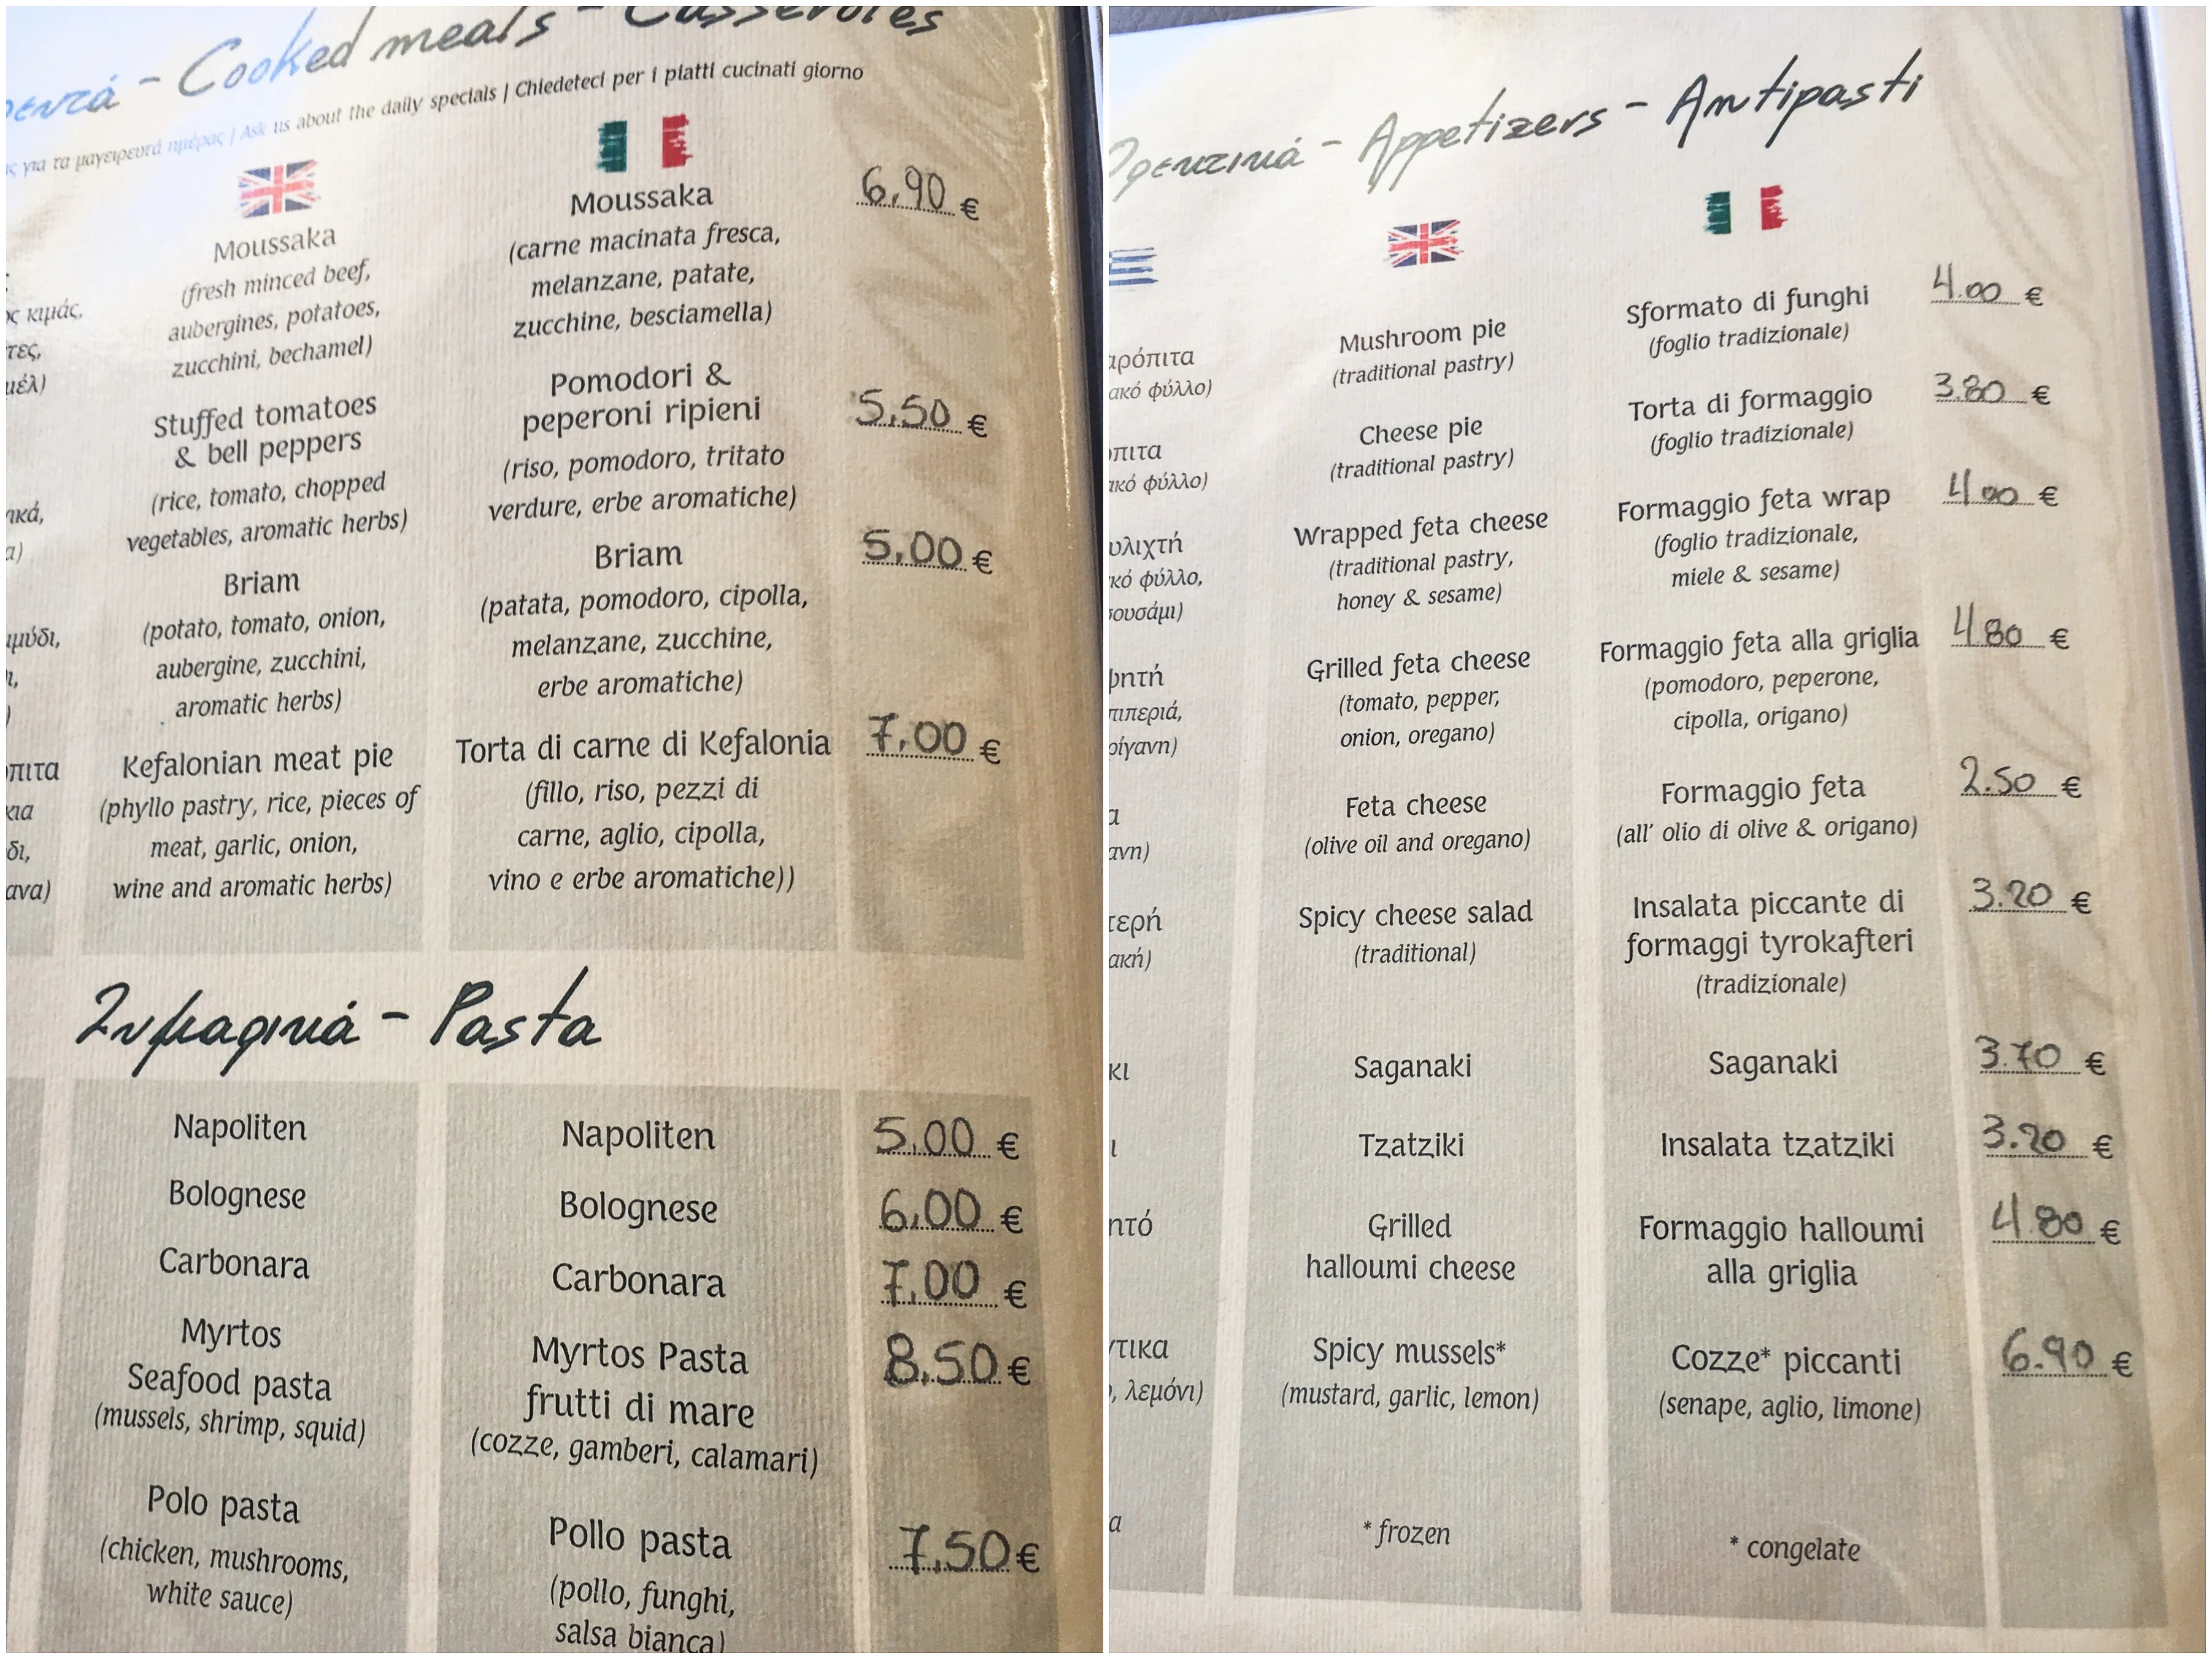 Cooked meals - Casseroles
ς για τα μαγειρευτά ημέρας | Ask us about the daily specials | Chiedeteci per i piatti cucinati giorno
Moussaka
(fresh minced beef,
aubergines, potatoes,
zucchini, bechamel)
Moussaka
(carne macinata fresca,
melanzane, patate,
zucchine, besciamella)
6,90 €
ος κιμάς,
τες,
μέλ)
Stuffed tomatoes
& bell peppers
(rice, tomato, chopped
vegetables, aromatic herbs)
Pomodori &
peperoni ripieni
(riso, pomodoro, tritato
verdure, erbe aromatiche)
5,50 €
ικά,
α)
Briam
(potato, tomato, onion,
aubergine, zucchini,
aromatic herbs)
Briam
(patata, pomodoro, cipolla,
melanzane, zucchine,
erbe aromatiche)
5,00 €
μύδι,
ι,
)
Kefalonian meat pie
(phyllo pastry, rice, pieces of
meat, garlic, onion,
wine and aromatic herbs)
Torta di carne di Kefalonia
(fillo, riso, pezzi di
carne, aglio, cipolla,
vino e erbe aromatiche))
7,00 €
πιτα
κια
δι,
ανα)
Ζυμαρικά - Pasta
Napoliten
Napoliten
5,00 €
Bolognese
Bolognese
6,00 €
Carbonara
Carbonara
7,00 €
Myrtos
Seafood pasta
(mussels, shrimp, squid)
Myrtos Pasta
frutti di mare
(cozze, gamberi, calamari)
8,50 €
Polo pasta
(chicken, mushrooms,
white sauce)
Pollo pasta
(pollo, funghi,
salsa bianca)
7,50 €
Ορεκτικά - Appetizers - Antipasti
αρόπιτα
ακό φύλλο)
Mushroom pie
(traditional pastry)
Sformato di funghi
(foglio tradizionale)
4.00 €
όπιτα
ακό φύλλο)
Cheese pie
(traditional pastry)
Torta di formaggio
(foglio tradizionale)
3.80 €
υλιχτή
κό φύλλο,
σουσάμι)
Wrapped feta cheese
(traditional pastry,
honey & sesame)
Formaggio feta wrap
(foglio tradizionale,
miele & sesame)
4.00 €
ψητή
πιπεριά,
ρίγανη)
Grilled feta cheese
(tomato, pepper,
onion, oregano)
Formaggio feta alla griglia
(pomodoro, peperone,
cipolla, origano)
4.80 €
α
ανη)
Feta cheese
(olive oil and oregano)
Formaggio feta
(all' olio di olive & origano)
2.50 €
τερή
ακή)
Spicy cheese salad
(traditional)
Insalata piccante di
formaggi tyrokafteri
(tradizionale)
3.20 €
κι
Saganaki
Saganaki
3.70 €
ι
Tzatziki
Insalata tzatziki
3.20 €
ητό
Grilled
halloumi cheese
Formaggio halloumi
alla griglia
4.80 €
τικα
, λεμόνι)
Spicy mussels*
(mustard, garlic, lemon)
Cozze* piccanti
(senape, aglio, limone)
6.90 €
α
* frozen
* congelate